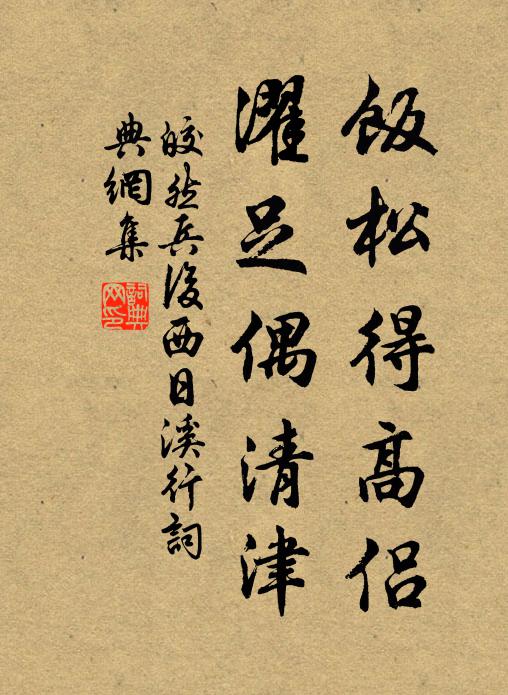 飯松得高侶
濯足偶清津
皎然兵後西日溪行詞
典網集
詞典网印